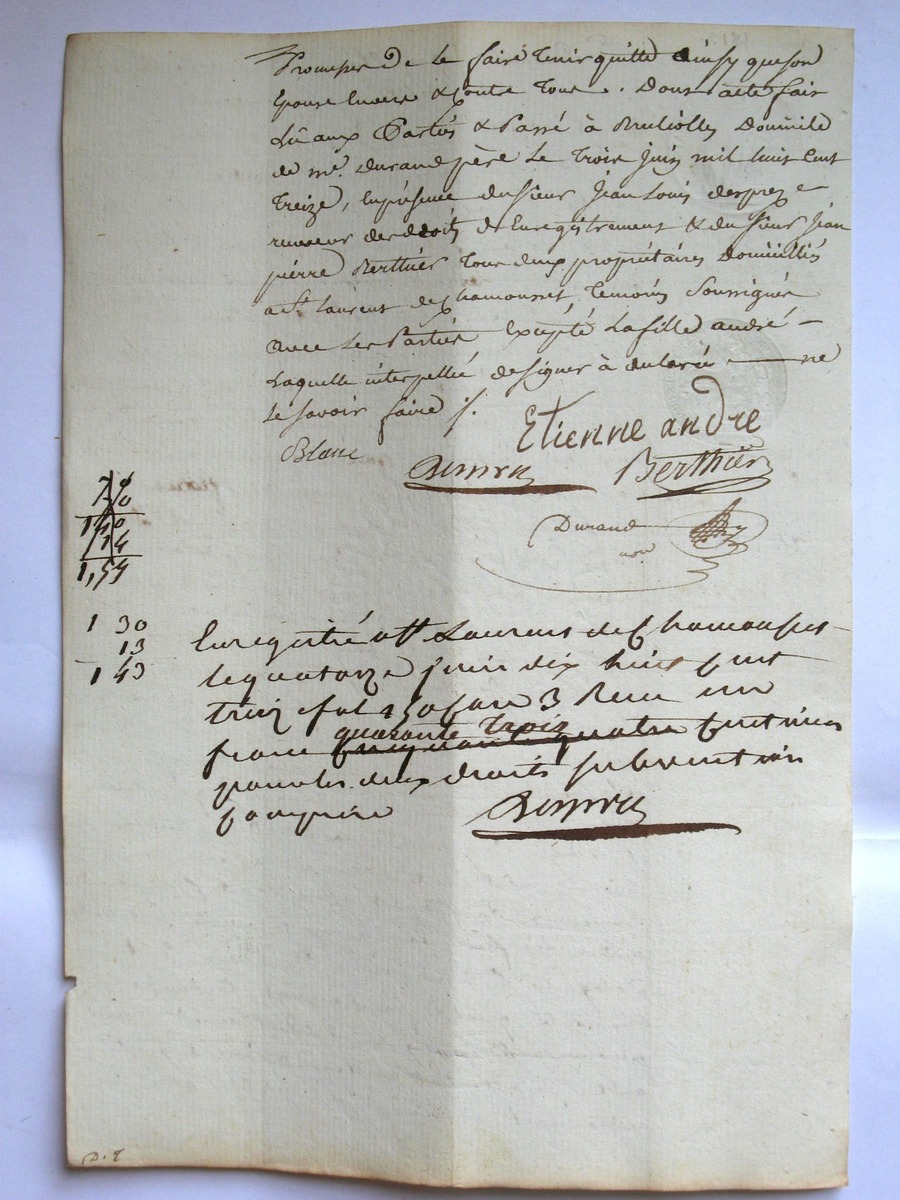 Promesse de le faire tenir quitte ainsy que son
Epouse Envers & contre tous. Dont acte fait
Lû aux Parties & Passé à Brullioles Domicile
de me. Durand père Le trois juin mil huit cent
treize, En présence du sieur Jean Louis desprez
receveur des droits de Enregistrement & du sieur Jean
pierre Berthier tous deux propriétaires Domiciliés
a St. Laurent de Chamousset, temoins soussignés
avec Les Parties Excépté La fille andré —
Laquelle interpellée de signer à declaré ne
le savoir faire
Blanc
Etienne andre
Berthier
Durand
not
1,54
1 30
13
1 43
Enregistré a St Laurent de Chamousset
le quatorze juin dix huit cent
treize fol 150 case 3 Reçu un
franc cinquante quatre centimes
quarante trois
pour les deux droits subvention
comprise
D. T